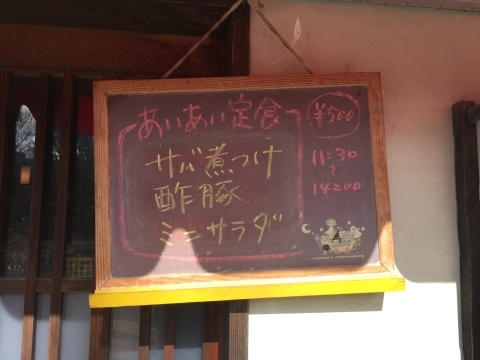 あいあい定食
サバ煮つけ
酢豚
ミニサラダ
¥500
11:30
〜
14:00